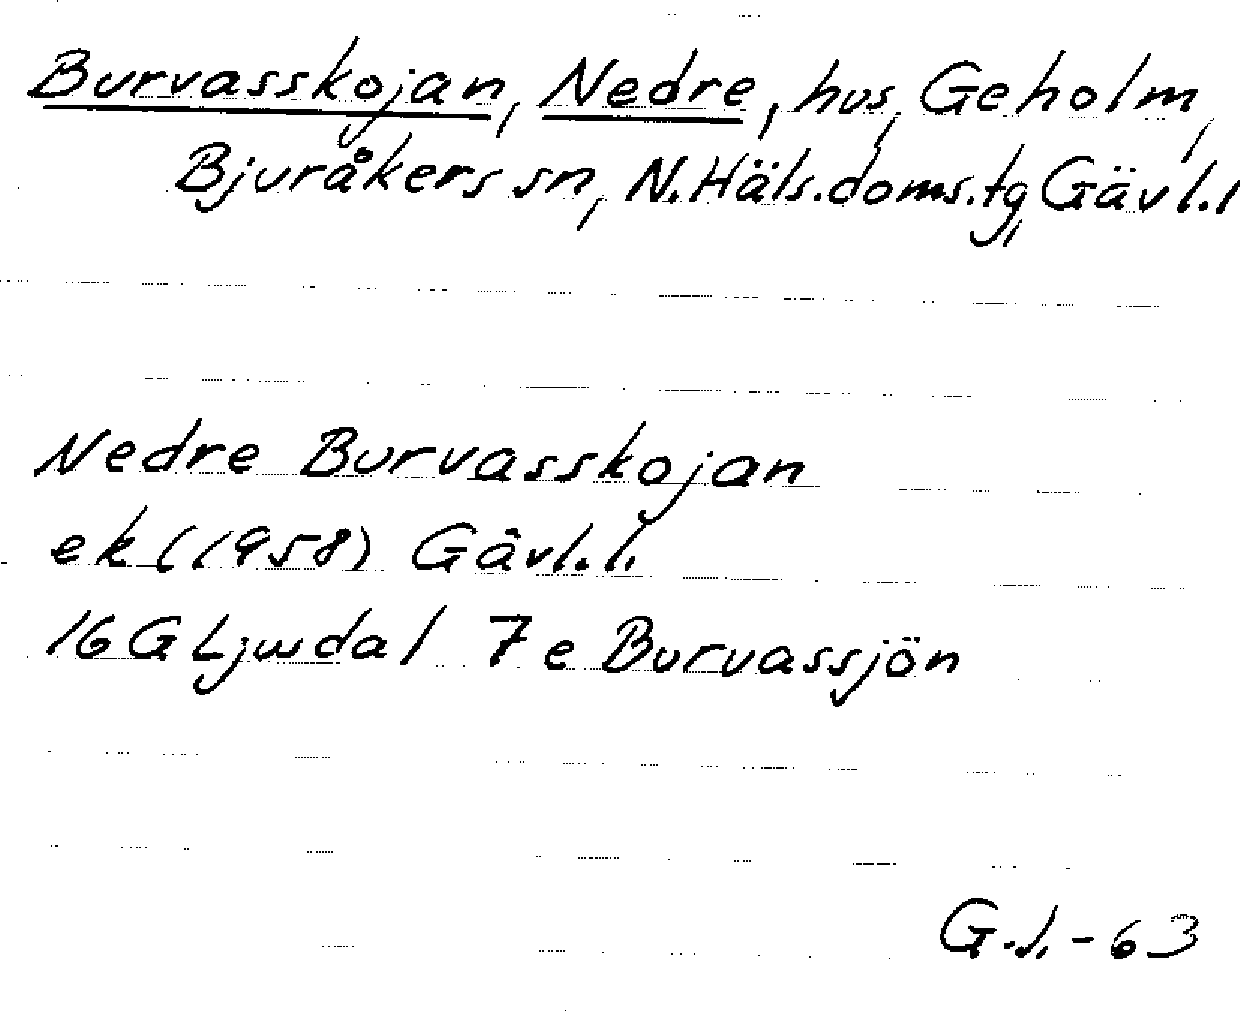 Burvasskojan, Nedre, hus, Geholm,
Bjuråkers sn, N. Häls. doms. tg, Gävl. l
Nedre Burvasskojan
ek (1958) Gävl. l.
16 G Ljusdal 7 e Burvassjön
G. l. - 63